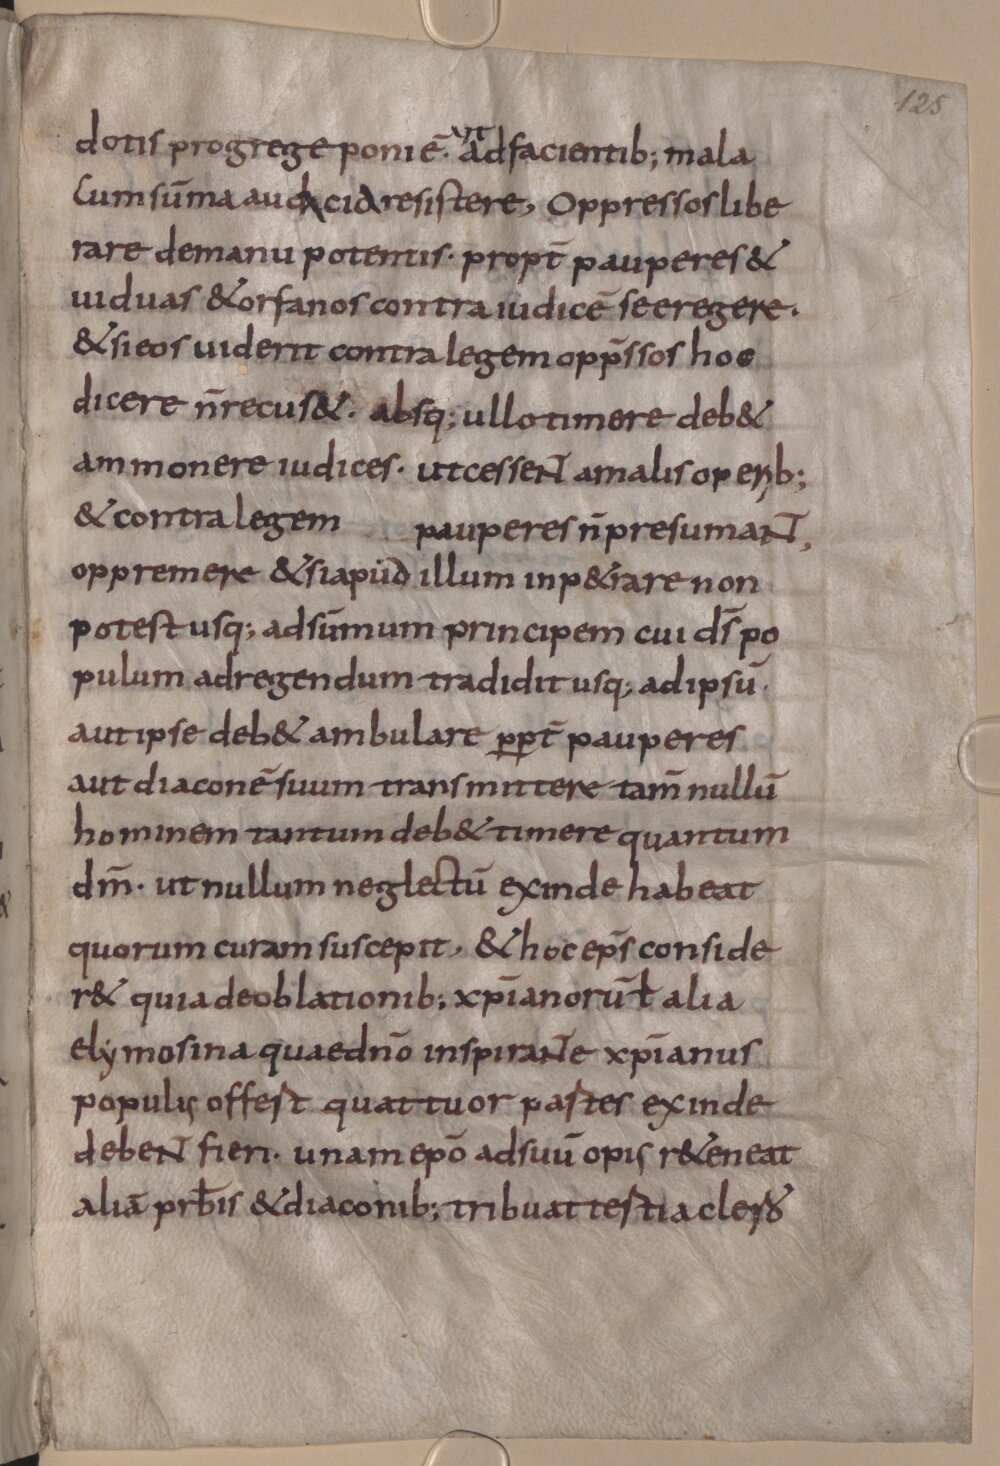 125
dotis progrege poni ē. ut adfacientib; mala
Cum sūma audacia resistere, Oppressos libe
rare demanu potentis. propt̄ pauperes &
uiduas & orfanos contra iudicē se eregere.
& si eos uiderit contra legem opp̄ssos hoc
dicere n̄ recus&. absq; ullo timere deb&
ammonere iudices. ut cessent amalis operib;
& contra legem pauperes n̄ presumant,
oppremere & si apud illum inp&rare non
potest usq; ad sūmum principem cui d̄s po
pulum adregendum tradidit usq; adipsū.
aut ipse deb& ambulare pp̄t̄ pauperes
aut diaconē suum transmittere tam̄ nullū
hominem tantum deb& timere quantum
dm̄. ut nullum neglectū exinde habeat
quorum curam suscepit, & hoc ep̄s conside
r& quia deoblationib; xp̄ianorū ł alia
elymosina quae dn̄o inspirante xp̄ianus
populus offert quattuor partes exinde
debent fieri. unam epō adsuū opus r&eneat
aliā prb̄is & diaconib; tribuat tertia clero